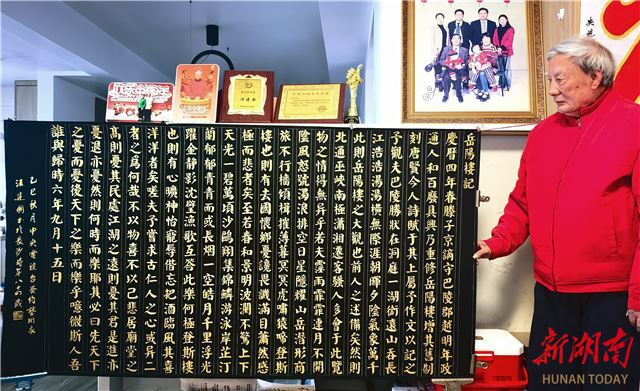 岳陽樓記
慶曆四年春滕子京謫守巴陵郡越明年政
通人和百廢具興乃重修岳陽樓增其舊制
刻唐賢今人詩賦于其上屬予作文以記之
予觀夫巴陵勝狀在洞庭一湖銜遠山吞長
江浩浩湯湯橫無際涯朝暉夕陰氣象萬千
此則岳陽樓之大觀也前人之述備矣然則
北通巫峽南極瀟湘遷客騷人多會于此覽
物之情得無異乎若夫霪雨霏霏連月不開
陰風怒號濁浪排空日星隱耀山岳潛形商
旅不行檣傾楫摧薄暮冥冥虎嘯猿啼登斯
樓也則有去國懷鄉憂讒畏譏滿目蕭然感
極而悲者矣至若春和景明波瀾不驚上下
天光一碧萬頃沙鷗翔集錦鱗游泳岸芷汀
蘭郁郁青青而或長煙一空皓月千里浮光
躍金靜影沉璧漁歌互答此樂何極登斯樓
也則有心曠神怡寵辱偕忘把酒臨風其喜
洋洋者矣嗟夫予嘗求古仁人之心或異二
者之為何哉不以物喜不以己悲居廟堂之
高則憂其民處江湖之遠則憂其君是進亦
憂退亦憂然則何時而樂耶其必曰先天下
之憂而憂後天下之樂而樂乎噫微斯人吾
誰與歸時六年九月十五日
乙巳秋月中央電視台簽約藝術家
新湖南
HUNAN TODAY